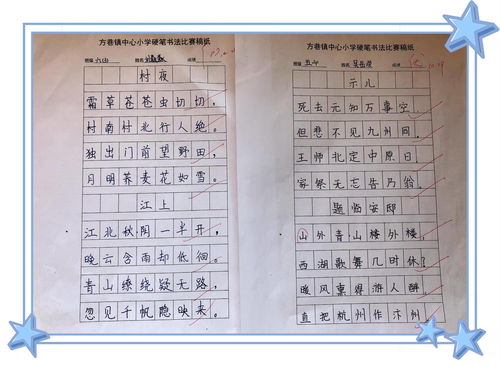 方巷镇中心小学硬笔书法比赛稿纸
班级 六(1) 姓名 成绩
村夜
霜草苍苍虫切切,
村南村北行人绝。
独出门前望野田,
月明荞麦花如雪。
江上
江北秋阴一半开,
晚云含雨却低徊。
青山缭绕疑无路,
忽见千帆隐映来。
方巷镇中心小学硬笔书法比赛稿纸
班级 姓名 成绩
示儿
死去元知万事空,
但悲不见九州同。
王师北定中原日,
家祭无忘告乃翁。
题临安邸
山外青山楼外楼,
西湖歌舞几时休?
暖风熏得游人醉,
直把杭州作汴州。